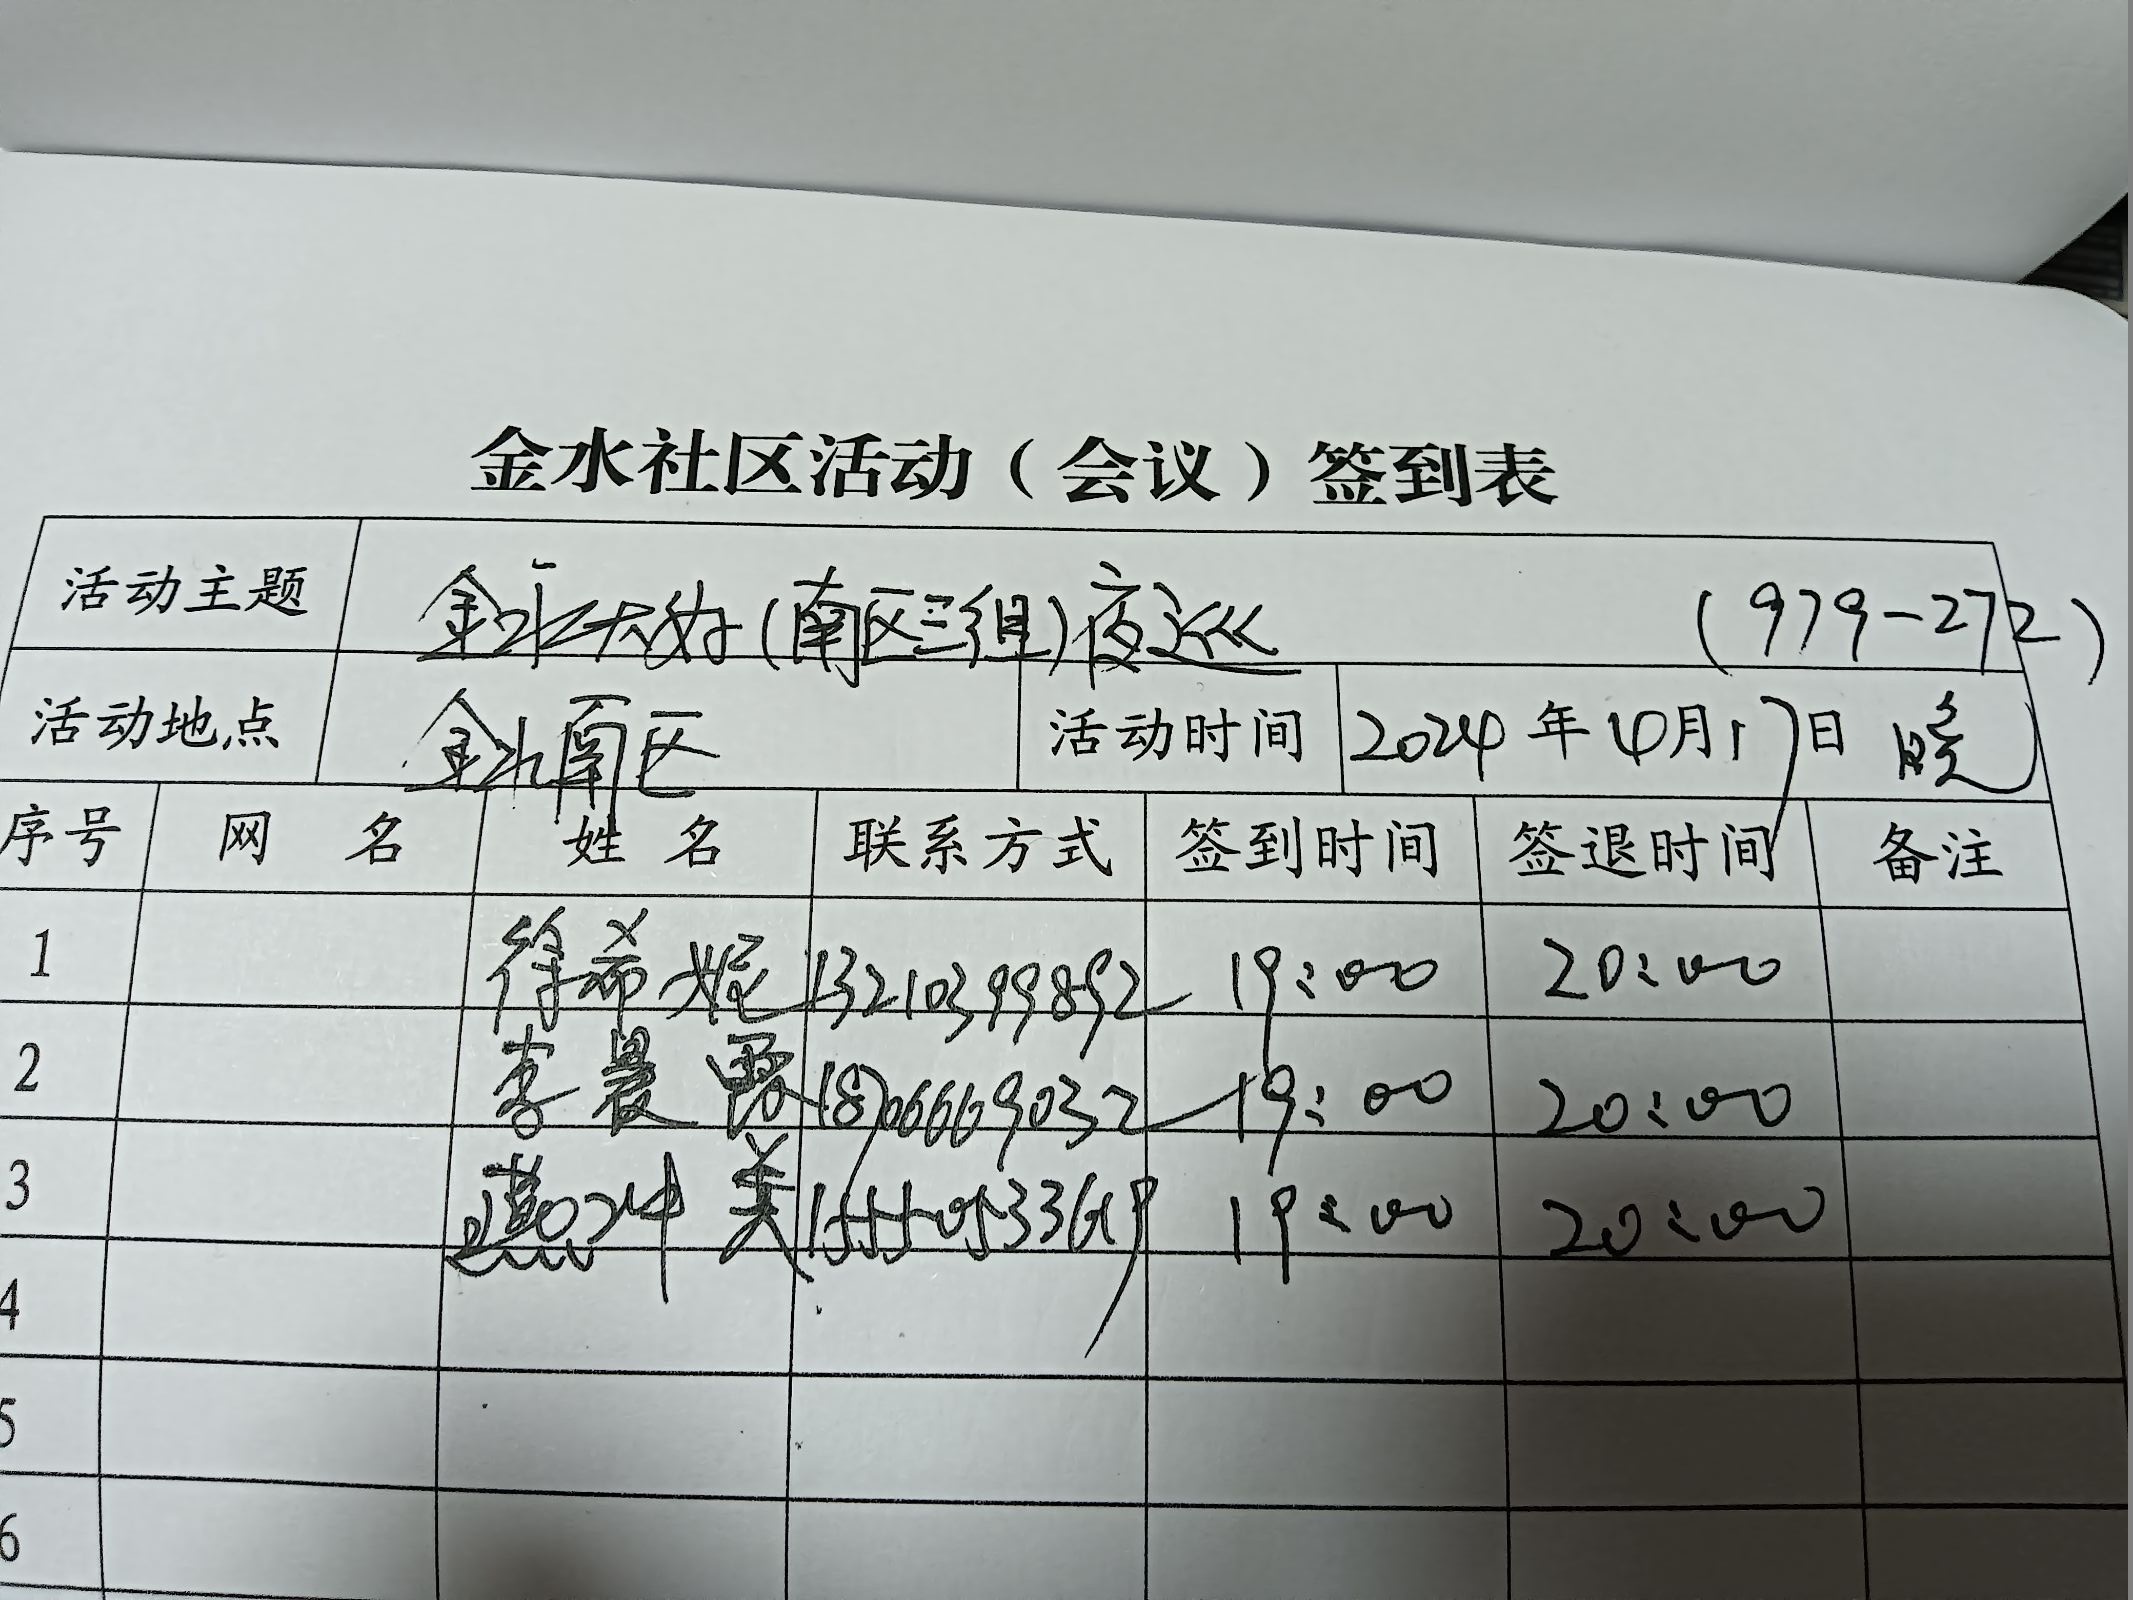 金水社区活动（会议）签到表
活动主题 金水大好(南区三组)夜巡 (979-272)
活动地点 金水南区 活动时间 2024年4月17日 晚
序号 网名 姓名 联系方式 签到时间 签退时间 备注
1 徐希妮 13210399892 19:00 20:00
2 李晨霞 18706669032 19:00 20:00
3 美 19:00 20:00
4
5
6